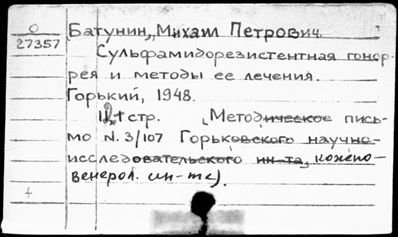 О
27357
Батунин, Михаил Петрович.
Сульфамидорезистентная гонор-
рея и методы ее лечения.
Горький, 1948.
стр. (Методическое пись-
мо N. 3/107 Горьковского научно-
исследовательского ин-та, кожно-
венерол. ин-та).
+